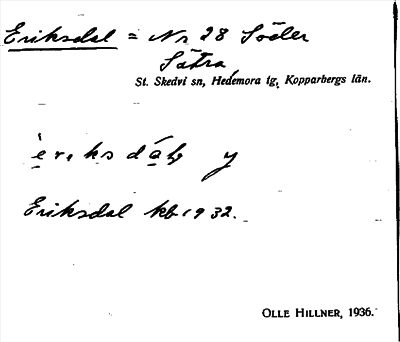 Eriksdal = Nr 28 Söder
Sätra
St. Skedvi sn, Hedemora tg, Kopparbergs län.
Eriksdal kb 1932.
OLLE HILLNER, 1936.